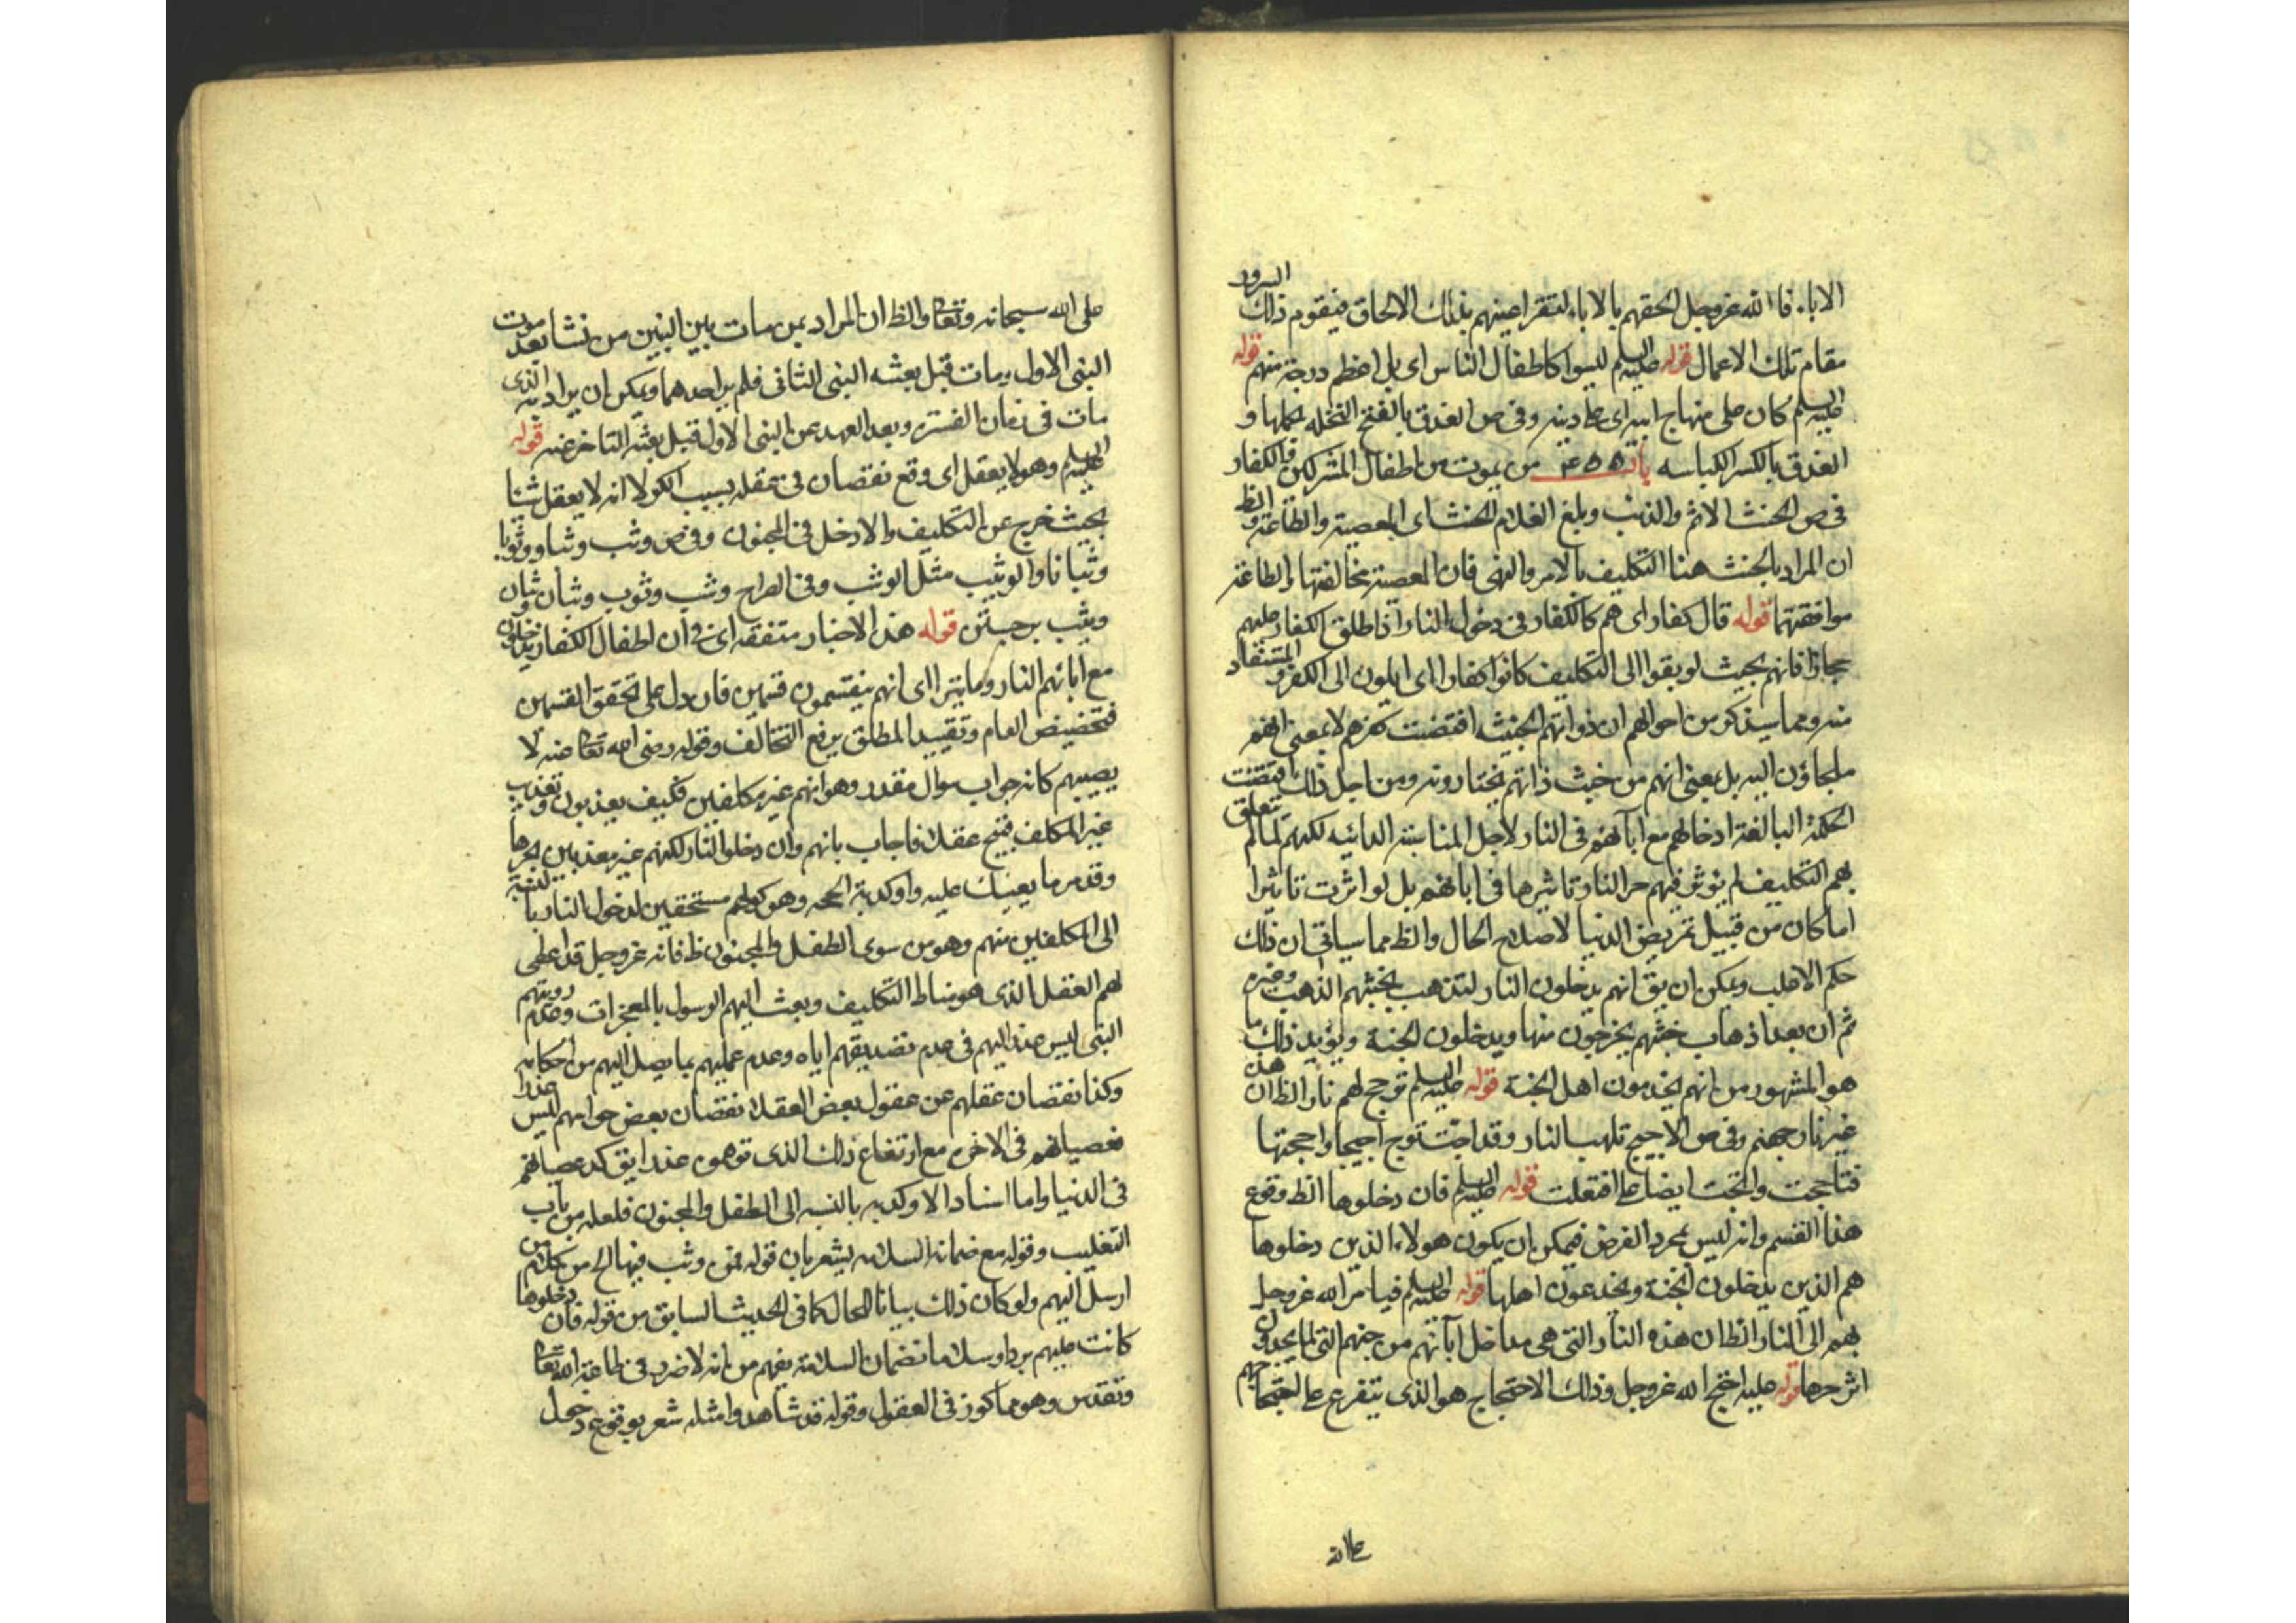 الاباء فالله عزوجل الحقهم بالاباء لتقر اعينهم بذلك الالحاق فيقوم ذلك السرور
مقام تلك الاعمال قوله عليه السلم ليسوا كاطفال الناس اى بل اعظم درجة منهم قوله
عليه السلم كان على منهاج ابيه اى على دينه وفى ص العذق بالفتح النخله بحملها و
العذق بالكسر الكباسه باب ۴۵۵ من يموت من اطفال المشركين والكفار
فى ص الحنث الاثم والذنب وبلغ الغلام الحنث اى المعصية والطاعة والظ
ان المراد بالحنث هنا التكليف بالامر والنهى فان المعصية مخالفتها والطاعة
موافقتهما قوله قال كفار اى هم كالكفار فى دخول النار اذ اطلق الكفار عليهم
مجازا فانهم بحيث لو بقوا الى التكليف كانوا كفارا اى ايلون الى الكفر والمستفاد
منه ومما سيذكر من احوالهم ان ذواتهم الخبيثه اقتضت كفرهم لا بمعنى انهم
ملجاؤن اليه بل بمعنى انهم من خبث ذاتهم يختارونه ومن اجل ذلك اقتضت
الحكمة البالغة ادخالهم مع ابآئهم فى النار لاجل المناسبة الذاتيه لكنهم لما لم يتعلق
بهم التكليف لم يؤثر فيهم حر النار تاثيرها فى ابائهم بل لو اثرت تاثيرا
اما كان من قبيل تمريض الدنيا لاصلاح الحال والظ مما سياتى ان ذلك
حكم الاغلب ويمكن ان يق انهم يدخلون النار لتذهب بخبثهم الذهب وغيره
ثم ان بعد اذهاب خبثهم يخرجون منها ويدخلون الجنة ويؤيد ذلك ما
هو المشهور من انهم يخدمون اهل الجنة قوله عليه السلم توجج لهم نارا الظ ان هذه
غير نار جهنم وفى ص الاجيج تلهب النار وقد اجّت توج اجيجا واججتها
فتاججت وائتجت ايضا على افتعلت قوله عليه السلم فان دخلوها الظ وقوع
هذا القسم وانه ليس بمجرد الفرض فيمكن ان يكون هولاء الذين دخلوها
هم الذين يدخلون الجنة ويخدعون اهلها قوله عليه السلم فيامر الله عزوجل
بهم الى النار الظ ان هذه النار التى هى مداخل آبائهم من جهنم التى لما يجدون
اثر حرها قوله عليه احتج الله عزوجل وذلك الاحتجاج هو الذى يتفرع على احتجاجهم
على الله
على الله سبحانه وتعالى والظ ان المراد بمن مات بين النبيين من نشا بعد موت
النبى الاول ومات قبل بعثه النبى الثانى فلم ير احدهما ويمكن ان يراد به الذى
مات فى زمان الفترة وبعد العهد عن النبى الاول قبل بعثه التاخر عنه قوله
عليه السلم وهو لا يعقل اى وقع نقصان فى عقله بسبب الكبر لا انه لا يعقل شيئا
بحيث خرج عن التكليف والا دخل فى المجنون وفى ص وثب وثبا ووثوبا
وثبانا والوثيب مثل الوثب وفى الصراح وثب وثوب وثبان
وثيب برجستن قوله هذه الاخبار متفقه اى فى ان اطفال الكفار يدخلون
مع ابائهم النار وما يترا اى انهم ينقسمون قسمين فان دل على تحقق القسمين
فتخصيص العام وتقييد المطلق يرفع التخالف وقوله رضى الله تعالى عنه لا
يصيبهم كانه جواب سوال مقدر وهو انهم غير مكلفين فكيف يعذبون وتعذيب
غير المكلف قبيح عقلا فاجاب بانهم وان دخلوا النار لكنهم غير معذبين بحرها
وقد مر ما يعينك عليه واوكدية الحجه وهو كونهم مستحقين لدخول النار بالنسبة
الى المكلفين منهم وهو من سوى الطفل والمجنون ظ فانه عزوجل قد اعطى
لهم العقل الذى هو مناط التكليف وبعث اليهم الرسول بالمعجزات وعدم رويتهم
النبى ليس عذرا لهم فى عدم تصديقهم اياه وعدم عملهم بما يصل اليهم من احكامه
وكذا نقصان عقلهم عن عقول بعض العقلا نقصان بعض حواسهم ليس عذرا
فعصيانهم فى الاخرة مع ارتفاع ذلك الذى توهموه عذرا يوكد عصيانهم
فى الدنيا واما اسناد الاوكديه بالنسبه الى الطفل والمجنون فلعله من باب
التغليب وقوله مع ضمانه السلامه يشعر بان قوله فمن وثب فيها الخ من كلام من
ارسل اليهم ولو كان ذلك بيانا للحال كما فى الحديث السابق من قوله فان دخلوها
كانت عليهم بردا وسلاما فضمان السلامة يفهم من انه لا ضرر فى طاعة الله تعالى
وتقدس وهو مما كوز فى العقول وقوله قد شاهدوا مثله شعر بوقوع دخول